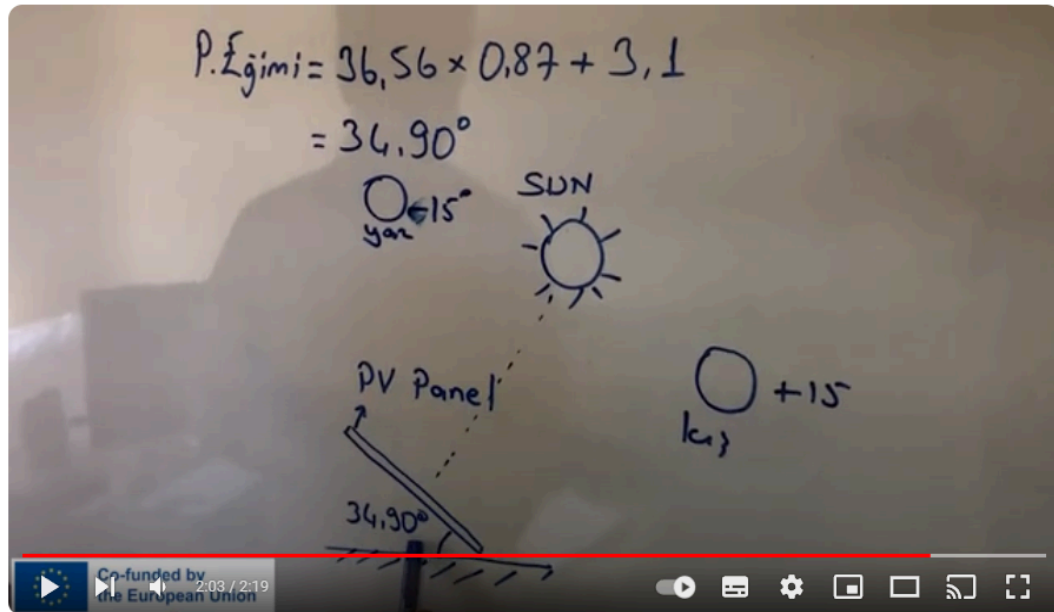 P.Eğimi = 36,56 × 0,87 + 3,1
= 34,90°
-15°
yaz
SUN
PV Panel
+15
kış
34,90°
Co-funded by
the European Union
2:03 / 2:19